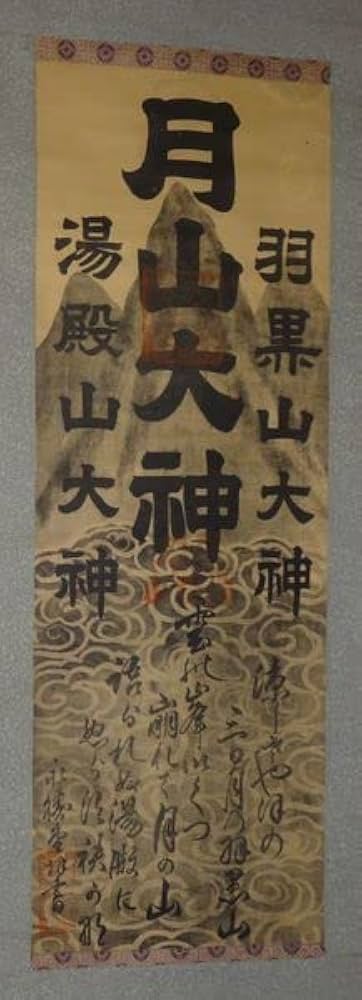 羽黒山大神
月山大神
湯殿山大神
涼しさやほの
三日月の羽黒山
雲の峯いくつ
崩れて月の山
語られぬ湯殿に
ぬらす袂かな
書